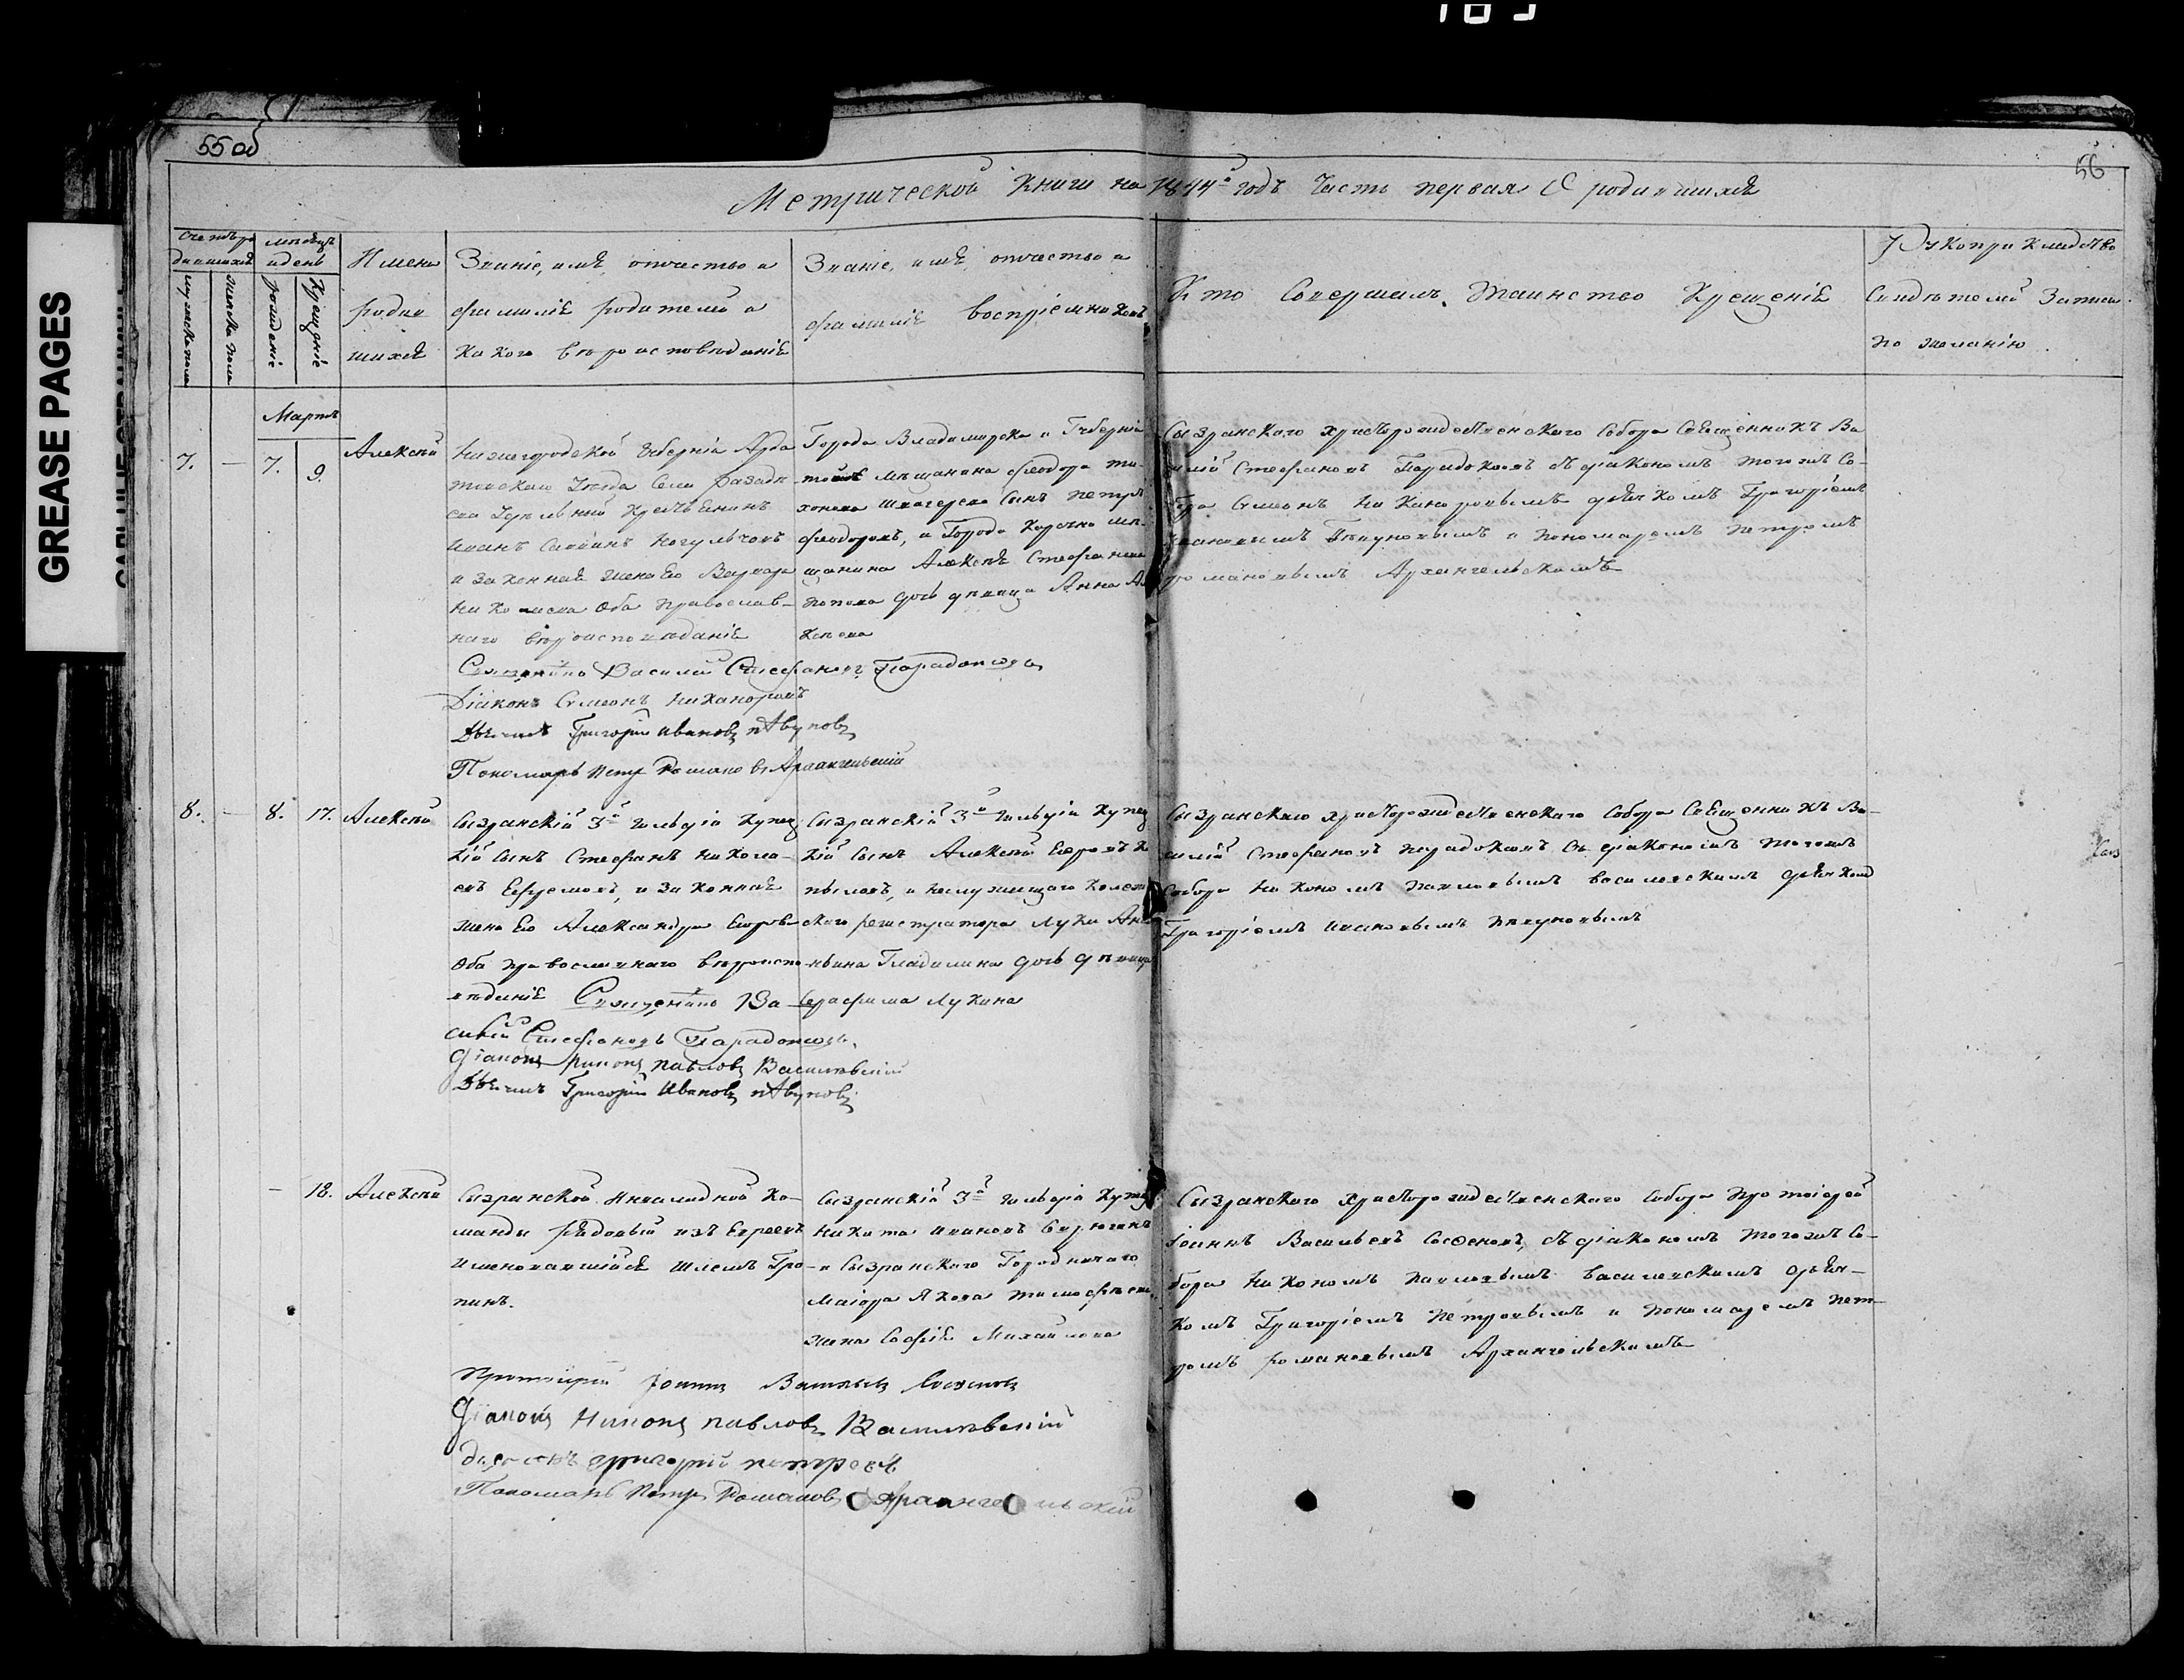 55об
56
GREASE PAGES
Метрической Книги на 1844й годъ Часть первая О родившихся
Счетъ родившихся
мужеска пола
женска пола
Месяцъ и день
рожденіе
Крещеніе
Имена родившихся
Званіе, имя, отчество и
фамилія родителей и
какого вероисповеданія
Званіе, имя, отчество и
фамилія воспріемниковъ
Кто Совершалъ Таинство Крещенія
Рукоприкладство
Свидетелей Записи
по желанію.
Мартъ
7. — 7. 9. Алексей
Нижегородской Губерніи Арда
товскаго Уезда Села
Удельный Крестьянинъ
Иванъ Саввинъ
и законная жена его Варвара
Николаева Оба православ-
наго вероисповеданія
Города Владимирска и Губерніи
мещанина Феодора Ти-
хонова сынъ Петръ
Феодоровъ, и Города ме-
щанина Алексея Стефанова
Попова дочь девица Анна Але
ксеева
Сызранскаго Христорождественскаго Собора Священникъ Ва
силій Стефановъ Парадоксовъ съ діакономъ тогожъ Со-
бора Симеонъ Никаноровымъ дьячкомъ Григоріемъ
Ивановымъ Певуновымъ и пономаремъ Петромъ
Романовымъ Архангельскимъ
Священникъ Василій Стефановъ Парадоксовъ
Діаконъ Симеонъ Никаноровъ
Дьячекъ Григорій Ивановъ Певуновъ
Пономарь Петръ Романовъ Архангельскій
8. — 8. 17. Алексей
Сызранскій 3й гильдіи купец
кій сынъ Стефанъ Никола-
евъ Ефремовъ, и законная
жена его Александра Егорова
Оба православнаго вероиспо
веданія
Сызранскій 3й гильдіи купец
кій сынъ Алексей
и неслужащаго Колеж
скаго регистратора Луки
Гладилина дочь девица
Серафима Лукина
Сызранскаго Христорождественскаго Собора Священникъ Ва-
силій Стефановъ Парадоксовъ съ діакономъ тогожъ
Собора Никономъ Павловымъ Василевскимъ дьячкомъ
Григоріемъ Ивановымъ Певуновымъ
Священникъ Ва
силій Стефановъ Парадоксовъ.
Діаконъ Никонъ Павловъ Василевскій
Дьячекъ Григорій Ивановъ Певуновъ
— 18. Алексей
Сызранской Инвалидной Ко-
манды Рядовый изъ Евреевъ
именовавшійся Шлемъ Гро-
пинъ.
Сызранскій 3й гильдіи купец
Никита Ивановъ
и Сызранскаго Городничаго
Маіора Якова Тимофеева
жена Софія Михайлова
Сызранскаго Христорождественскаго Собора Протоіерей
Іоаннъ Васильевъ Сосновъ, съ діакономъ тогожъ Со-
бора Никономъ Павловымъ Василевскимъ дьяч-
комъ Григоріемъ Петровымъ и пономаремъ Пет-
ромъ Романовымъ Архангельскимъ
Протоіерей Іоаннъ Васильевъ Сосновъ
Діаконъ Никонъ Павловъ Василевскій
Дьячекъ Григорій Петровъ
Пономарь Петръ Романовъ Архангельскій